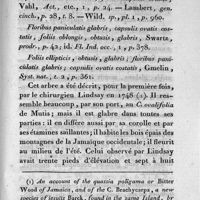 Vahl, Act., etc., 1, p. 24. — Lambert, gen.
cinch., p. 28, t. 8. — Wild. sp., pl. 1, p. 960.
Floribus paniculatis glabris, capsulis ovatis cos-
tatis, foliis oblongis, obtusis, glabris, Swartz,
prodr., p. 42; id. Fl. Ind. acc., 1, p. 378.
Foliis ellipticis, obtusis, glabris; floribus pani-
culatis glabris; capsulis ovatis costatis; Gmelin,
Syst. nat., t. 2, p. 361.
Cet arbre a été décrit, pour la première fois,
par le chirurgien Lindsay en 1748 (1). Il res-
semble beaucoup, par le port, au C. ovalifolia
de Mutis; mais il est glabre dans toutes ses
parties: et en diffère aussi par sa corolle et par
ses étamines saillantes; il habite les bois épais des
montagnes de la Jamaïque occidentale; il fleurit
au milieu de l'été. Celui observé par Lindsay
avait trente pieds d'élévation et sept à huit
(1) An account of the quassia poligama or Bitter
Wood of Jamaica, and of the C. Beachycarpa, a new
species of jesuite Barck, found in the same Island, by